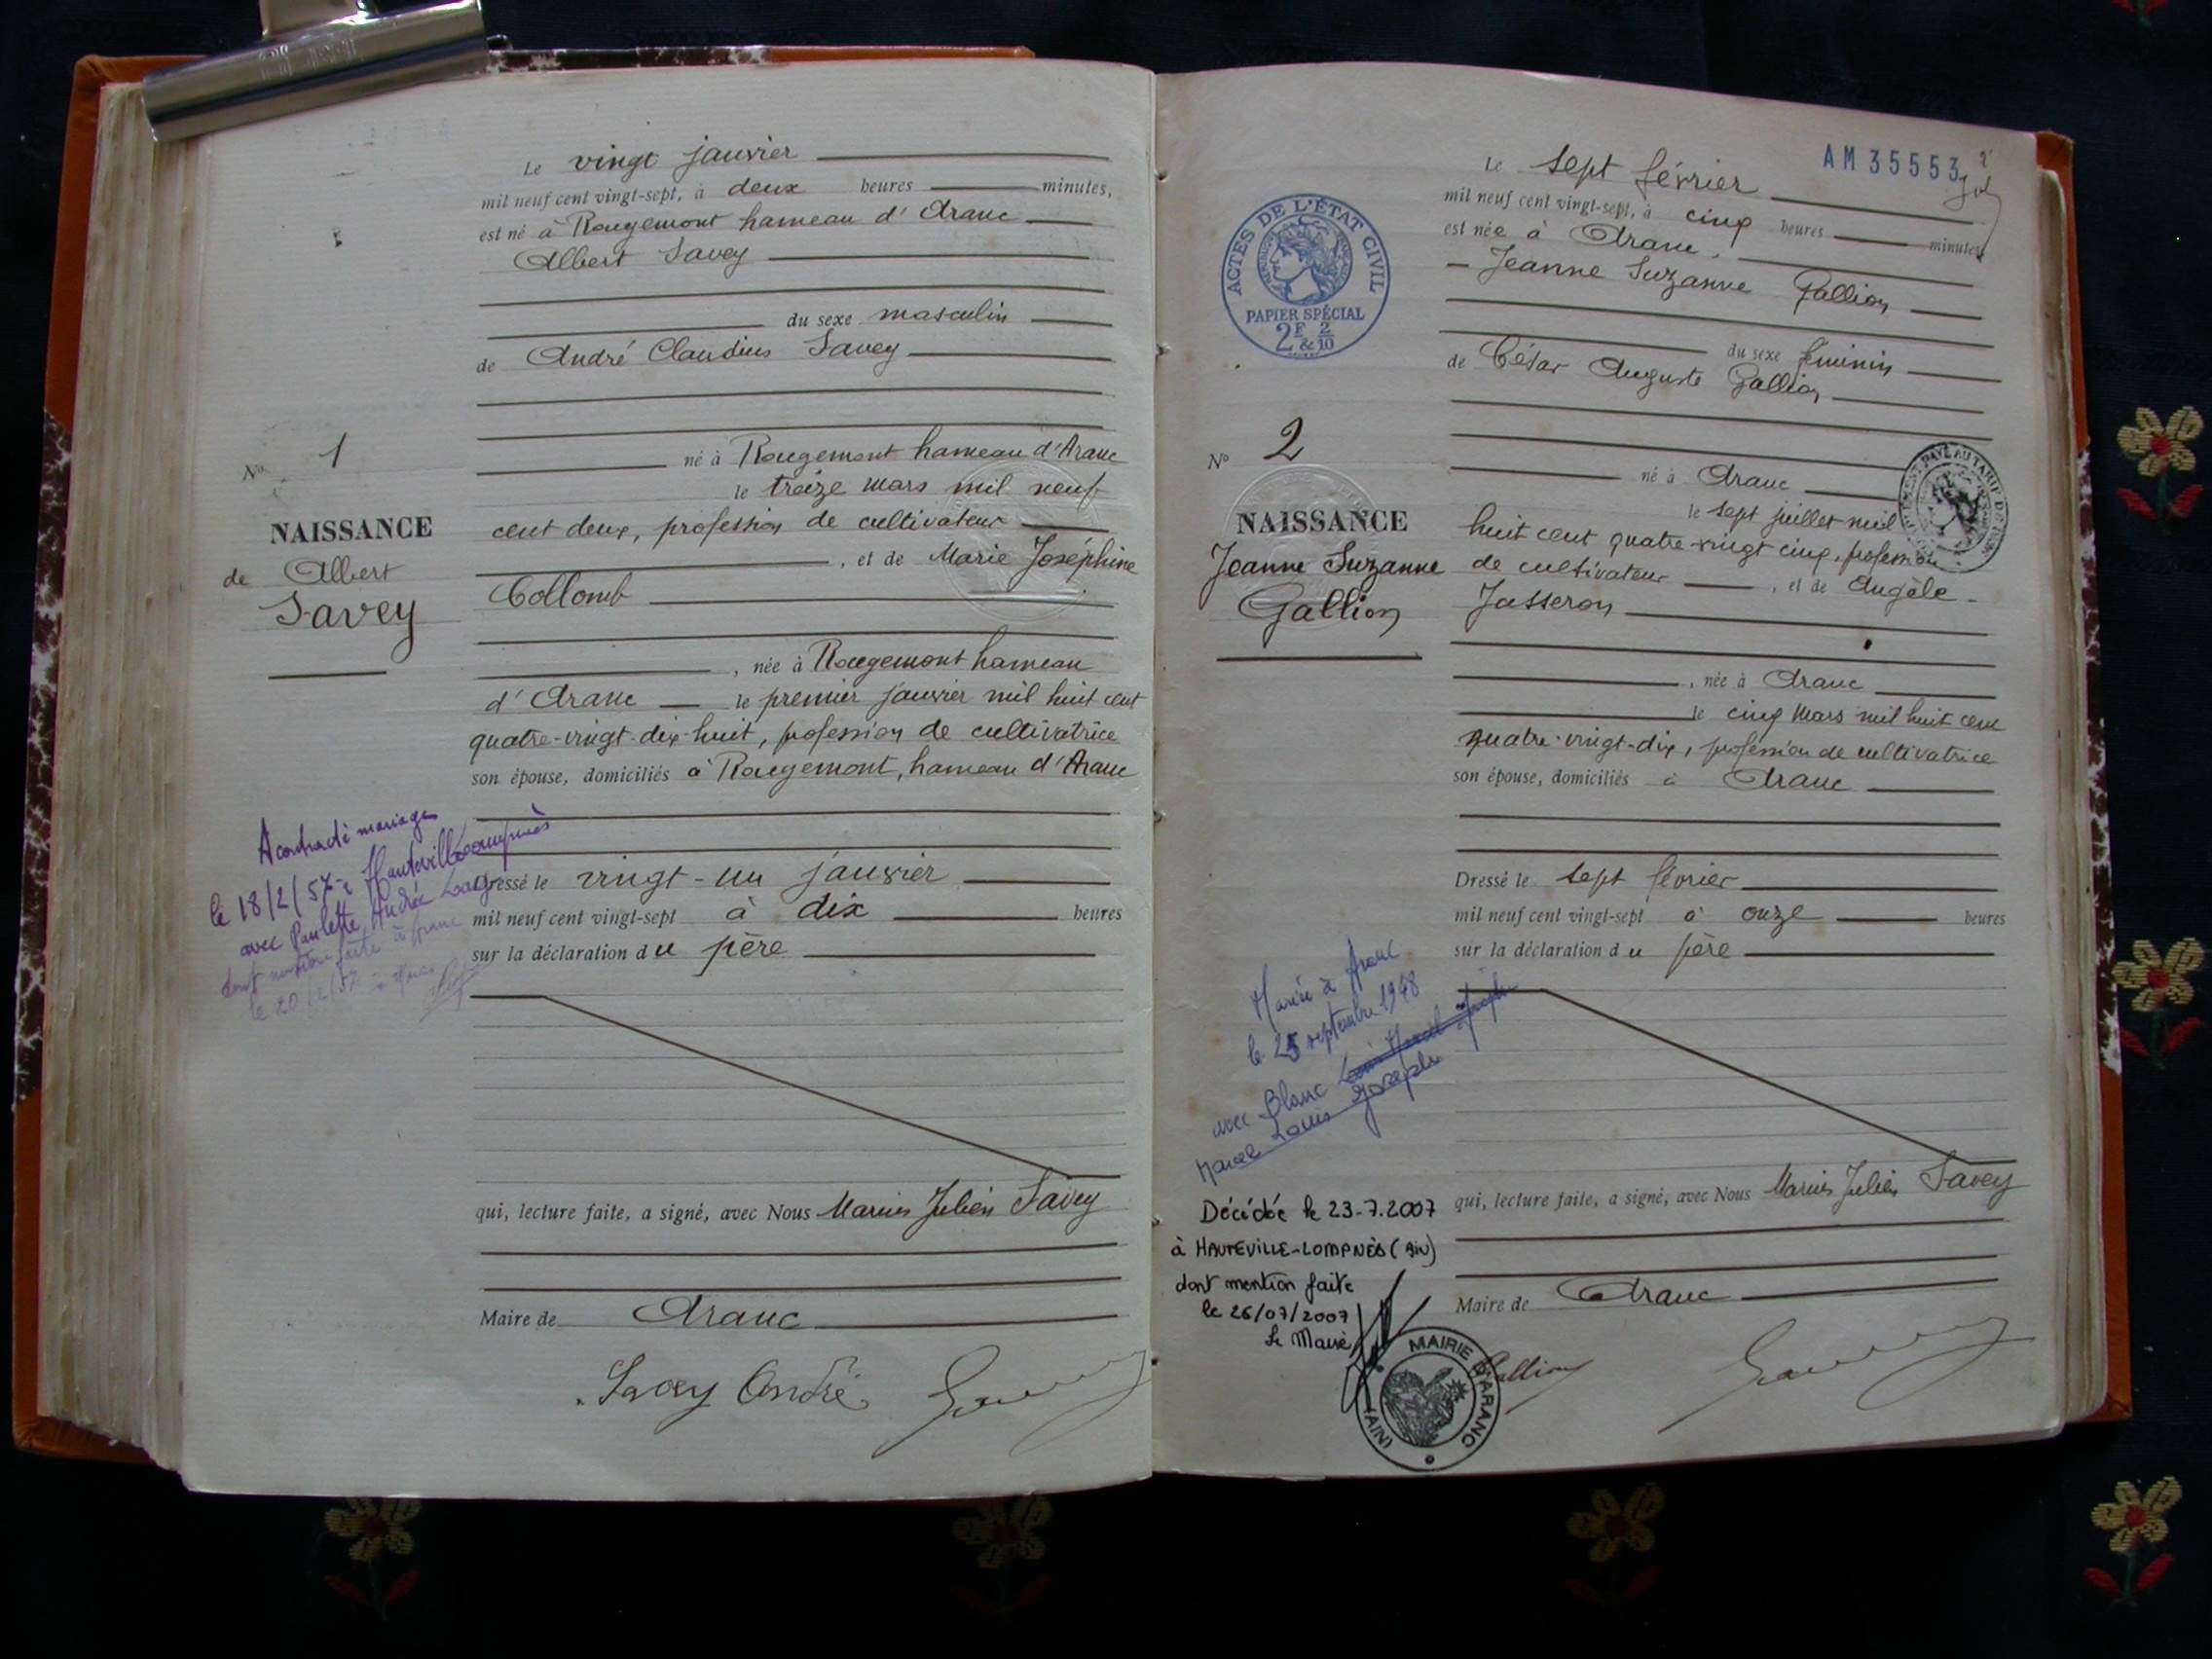 Le vingt janvier
mil neuf cent vingt-sept, à deux heures minutes,
est né à Rougemont hameau d'Aranc
Albert Savey
du sexe masculin
de André Claudius Savey
né à Rougemont hameau d'Aranc
le treize mars mil neuf
cent deux, profession de cultivateur
, et de Marie Joséphine
Collomb
, née à Rougemont hameau
d'Aranc le premier janvier mil huit cent
quatre-vingt-dix-huit, profession de cultivatrice
son épouse, domiciliés à Rougemont, hameau d'Aranc
Dressé le vingt-un janvier
mil neuf cent vingt-sept à dix heures
sur la déclaration du père
qui, lecture faite, a signé, avec Nous Marius Julien Savey
Maire de Aranc
Savey André
No 1
NAISSANCE
de Albert
Savey
A contracté mariage
le 18/2/57 à Hauteville-Lompnès
avec Paulette Andrée
dont mention faite à Aranc
le 20/2/57
AM 35553
Le sept février
mil neuf cent vingt-sept, à cinq heures minutes
est née à Aranc,
Jeanne Suzanne Gallion
du sexe féminin
de César Auguste Gallion
né à Aranc
le sept juillet mil
huit cent quatre-vingt cinq, profession
de cultivateur , et de Angèle
Jasseron
, née à Aranc
le cinq mars mil huit cent
quatre-vingt-dix, profession de cultivatrice
son épouse, domiciliés à Aranc
Dressé le sept février
mil neuf cent vingt-sept à onze heures
sur la déclaration du père
qui, lecture faite, a signé, avec Nous Marius Julien Savey
Maire de Aranc
Gallion
ACTES DE L'ÉTAT CIVIL
PAPIER SPÉCIAL
2F & 2/10
No 2
NAISSANCE
Jeanne Suzanne
Gallion
Mariée à Aranc
le 25 septembre 1948
avec Blanc
Marcel Louis Joseph
Décédée le 23-7.2007
à HAUTEVILLE-LOMPNÈS (Ain)
dont mention faite
le 26/07/2007
Le Maire
MAIRIE D'ARANC
(AIN)